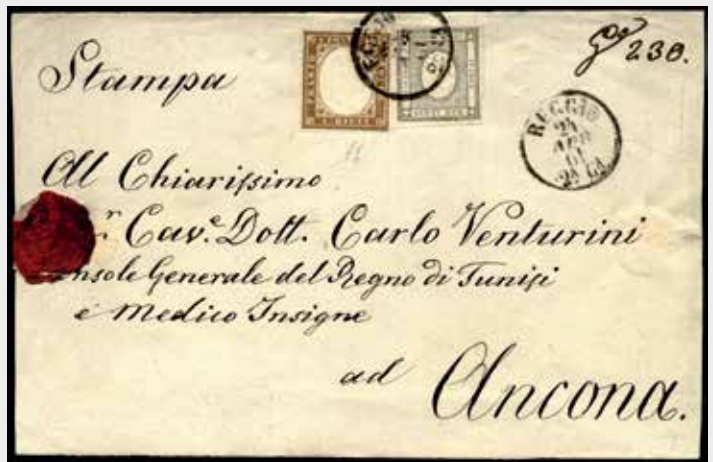 Stampa
230.
REGGIO
24
APR
61
Al Chiarissimo
Cav.e Dott. Carlo Venturini
Console Generale del Regno di Tunisi
e Medico Insigne
ad
Ancona.